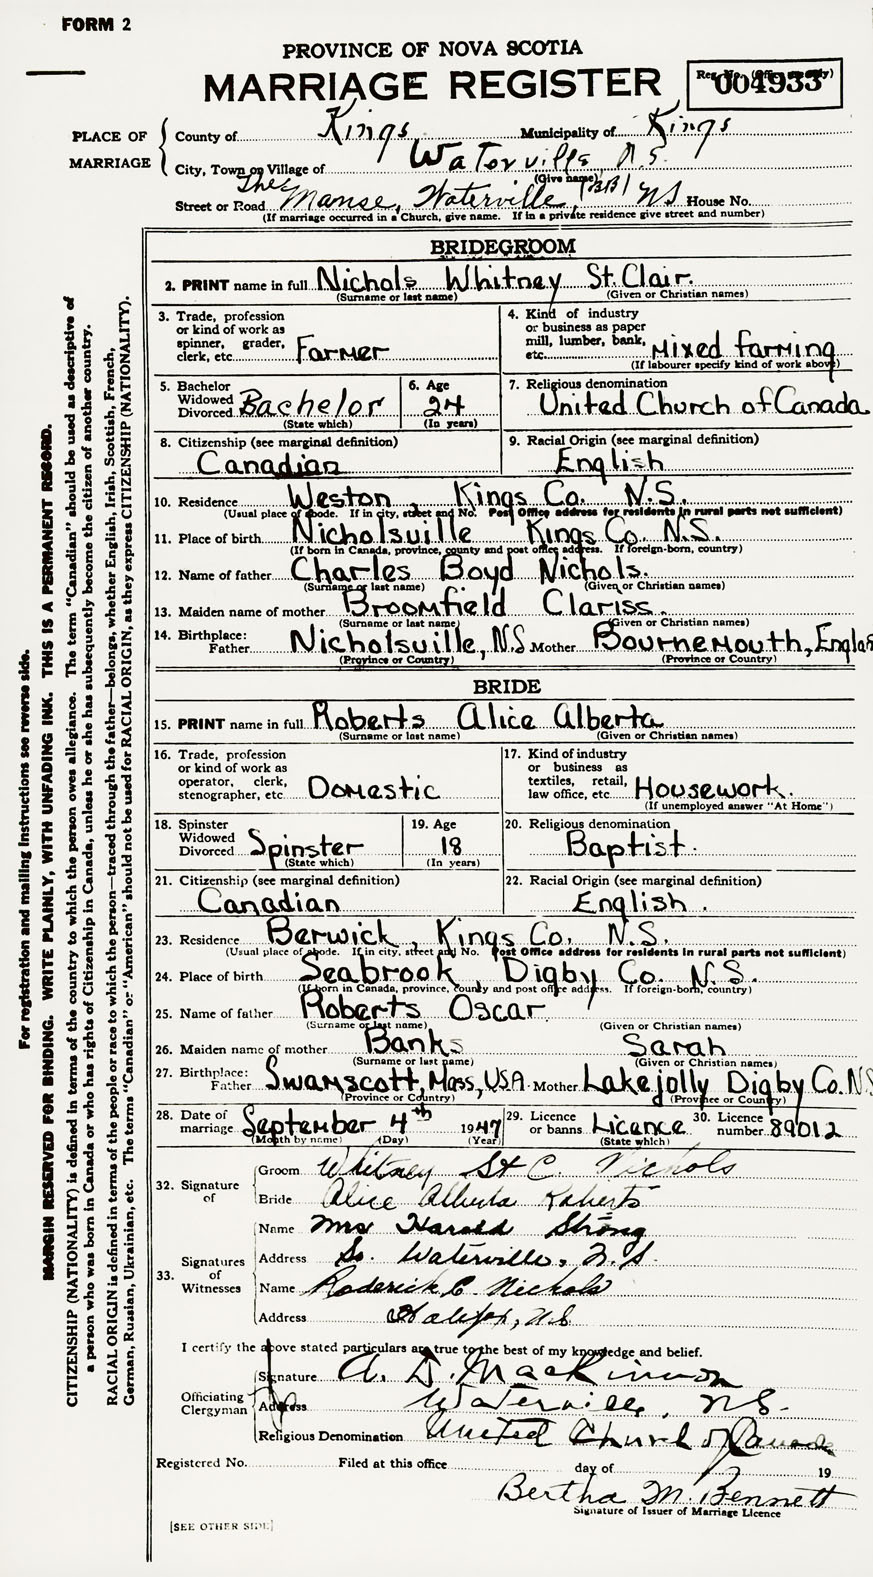 FORM 2
PROVINCE OF NOVA SCOTIA
MARRIAGE REGISTER
Reg. No. (Office use only)
004933
PLACE OF MARRIAGE
County of Kings Municipality of Kings
City, Town or Village of Waterville, N.S.
(Give name)
Street or Road The Manse, Waterville, NS House No.
(If marriage occurred in a Church, give name. If in a private residence give street and number)
BRIDEGROOM
2. PRINT name in full Nichols Whitney St. Clair.
(Surname or last name) (Given or Christian names)
3. Trade, profession or kind of work as spinner, grader, clerk, etc. Farmer
4. Kind of industry or business as paper mill, lumber, bank, etc. Mixed farming
(If labourer specify kind of work above)
5. Bachelor Widowed Divorced Bachelor (State which)
6. Age 24 (In years)
7. Religious denomination United Church of Canada
8. Citizenship (see marginal definition) Canadian
9. Racial Origin (see marginal definition) English
10. Residence Weston, Kings Co. N.S.
(Usual place of abode. If in city, street and No. Post Office address for residents in rural parts not sufficient)
11. Place of birth Nicholsville Kings Co. N.S.
(If born in Canada, province, county and post office address. If foreign-born, country)
12. Name of father Charles Boyd Nichols.
(Surname or last name) (Given or Christian names)
13. Maiden name of mother Broomfield Clariss.
(Surname or last name) (Given or Christian names)
14. Birthplace: Father Nicholsville, N.S Mother Bournemouth, Englan
(Province or Country) (Province or Country)
BRIDE
15. PRINT name in full Roberts Alice Alberta
(Surname or last name) (Given or Christian names)
16. Trade, profession or kind of work as operator, clerk, stenographer, etc. Domestic
17. Kind of industry or business as textiles, retail, law office, etc. Housework.
(If unemployed answer "At Home")
18. Spinster Widowed Divorced Spinster (State which)
19. Age 18 (In years)
20. Religious denomination Baptist.
21. Citizenship (see marginal definition) Canadian
22. Racial Origin (see marginal definition) English.
23. Residence Berwick, Kings Co. N.S.
(Usual place of abode. If in city, street and No. Post Office address for residents in rural parts not sufficient)
24. Place of birth Seabrook Digby Co. N.S.
(If born in Canada, province, county and post office address. If foreign-born, country)
25. Name of father Roberts Oscar
(Surname or last name) (Given or Christian names)
26. Maiden name of mother Banks Sarah
(Surname or last name) (Given or Christian names)
27. Birthplace: Father Swamscott, Mass, USA. Mother Lake jolly Digby Co. N.S
(Province or Country) (Province or Country)
28. Date of marriage September 4th 1947
(Month by name) (Day) (Year)
29. Licence or banns Licence (State which)
30. Licence number 89012
32. Signature of
Groom Whitney St C. Nichols
Bride Alice Alberta Roberts
33. Signatures of Witnesses
Name Mrs Harold Strong
Address So. Waterville, N.S.
Name Roderick C. Nichols
Address Halifax, N.S
I certify the above stated particulars are true to the best of my knowledge and belief.
Officiating Clergyman
Signature A. D. MacKinnon
Address Waterville, N.S.
Religious Denomination United Church of Canada
Registered No. Filed at this office day of 19
Bertha M. Bennett
Signature of Issuer of Marriage Licence
[SEE OTHER SIDE]
For registration and mailing instructions see reverse side.
MARGIN RESERVED FOR BINDING. WRITE PLAINLY, WITH UNFADING INK. THIS IS A PERMANENT RECORD.
CITIZENSHIP (NATIONALITY) is defined in terms of the country to which the person owes allegiance. The term "Canadian" should be used as descriptive of
a person who was born in Canada or who has rights of Citizenship in Canada, unless he or she has subsequently become the citizen of another country.
RACIAL ORIGIN is defined in terms of the people or race to which the person—traced through the father—belongs, whether English, Irish, Scottish, French,
German, Russian, Ukrainian, etc. The terms "Canadian" or "American" should not be used for RACIAL ORIGIN, as they express CITIZENSHIP (NATIONALITY).